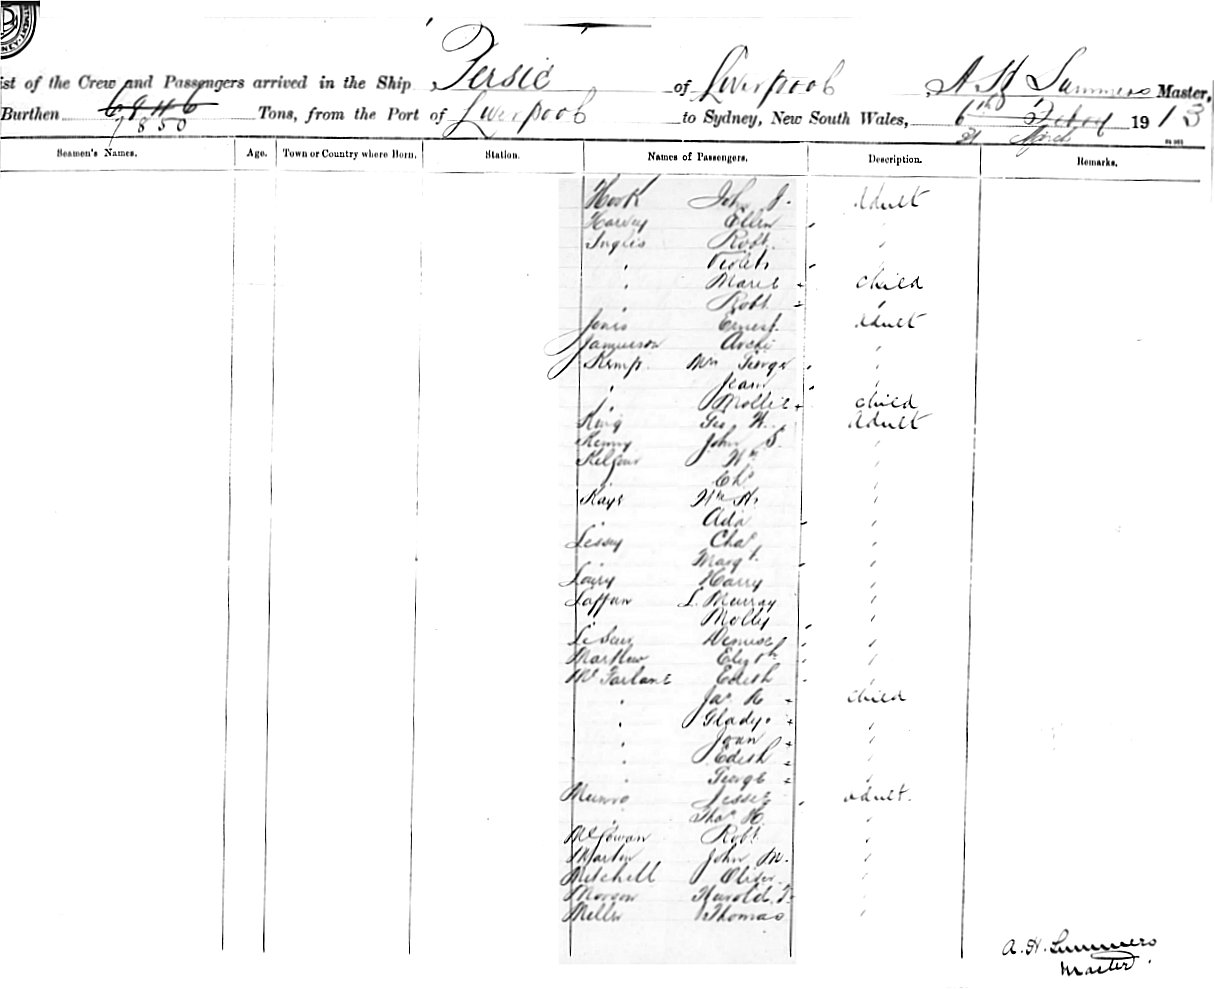 ist of the Crew and Passengers arrived in the Ship Persic of Liverpool A H Summers Master,
Burthen 6946 7850 Tons, from the Port of Liverpool to Sydney, New South Wales, 6th 21 April 1913
Seamen's Names. Age. Town or Country where Born. Station. Names of Passengers. Description. Remarks.
Hook John J. Adult
Harvey Ellen "
Inglis Robt. "
" Violet "
" child
" Robt "
Jones Ernest Adult
Jamieson Archi "
Kemp Mrs George "
" Jean "
" Mollie child
King Geo. H. Adult
Kenny John S. "
Kilgour Wm "
" Chs "
Kays Wm H. "
" Ada "
Lessey Chas "
" Margt. "
Harry "
Laffan L. Murray "
" Molly "
Le Seur Denise "
Marthew Elizth "
McFarlane Edith "
" Jas R child
" Gladys "
" Joan "
" Edith "
" George "
Munro Jessie adult.
" Thos H. "
McGowan Robt. "
Martin John M. "
Mitchell Oliver "
Morgan Harold T. "
Thomas "
A. H. Summers
Master.